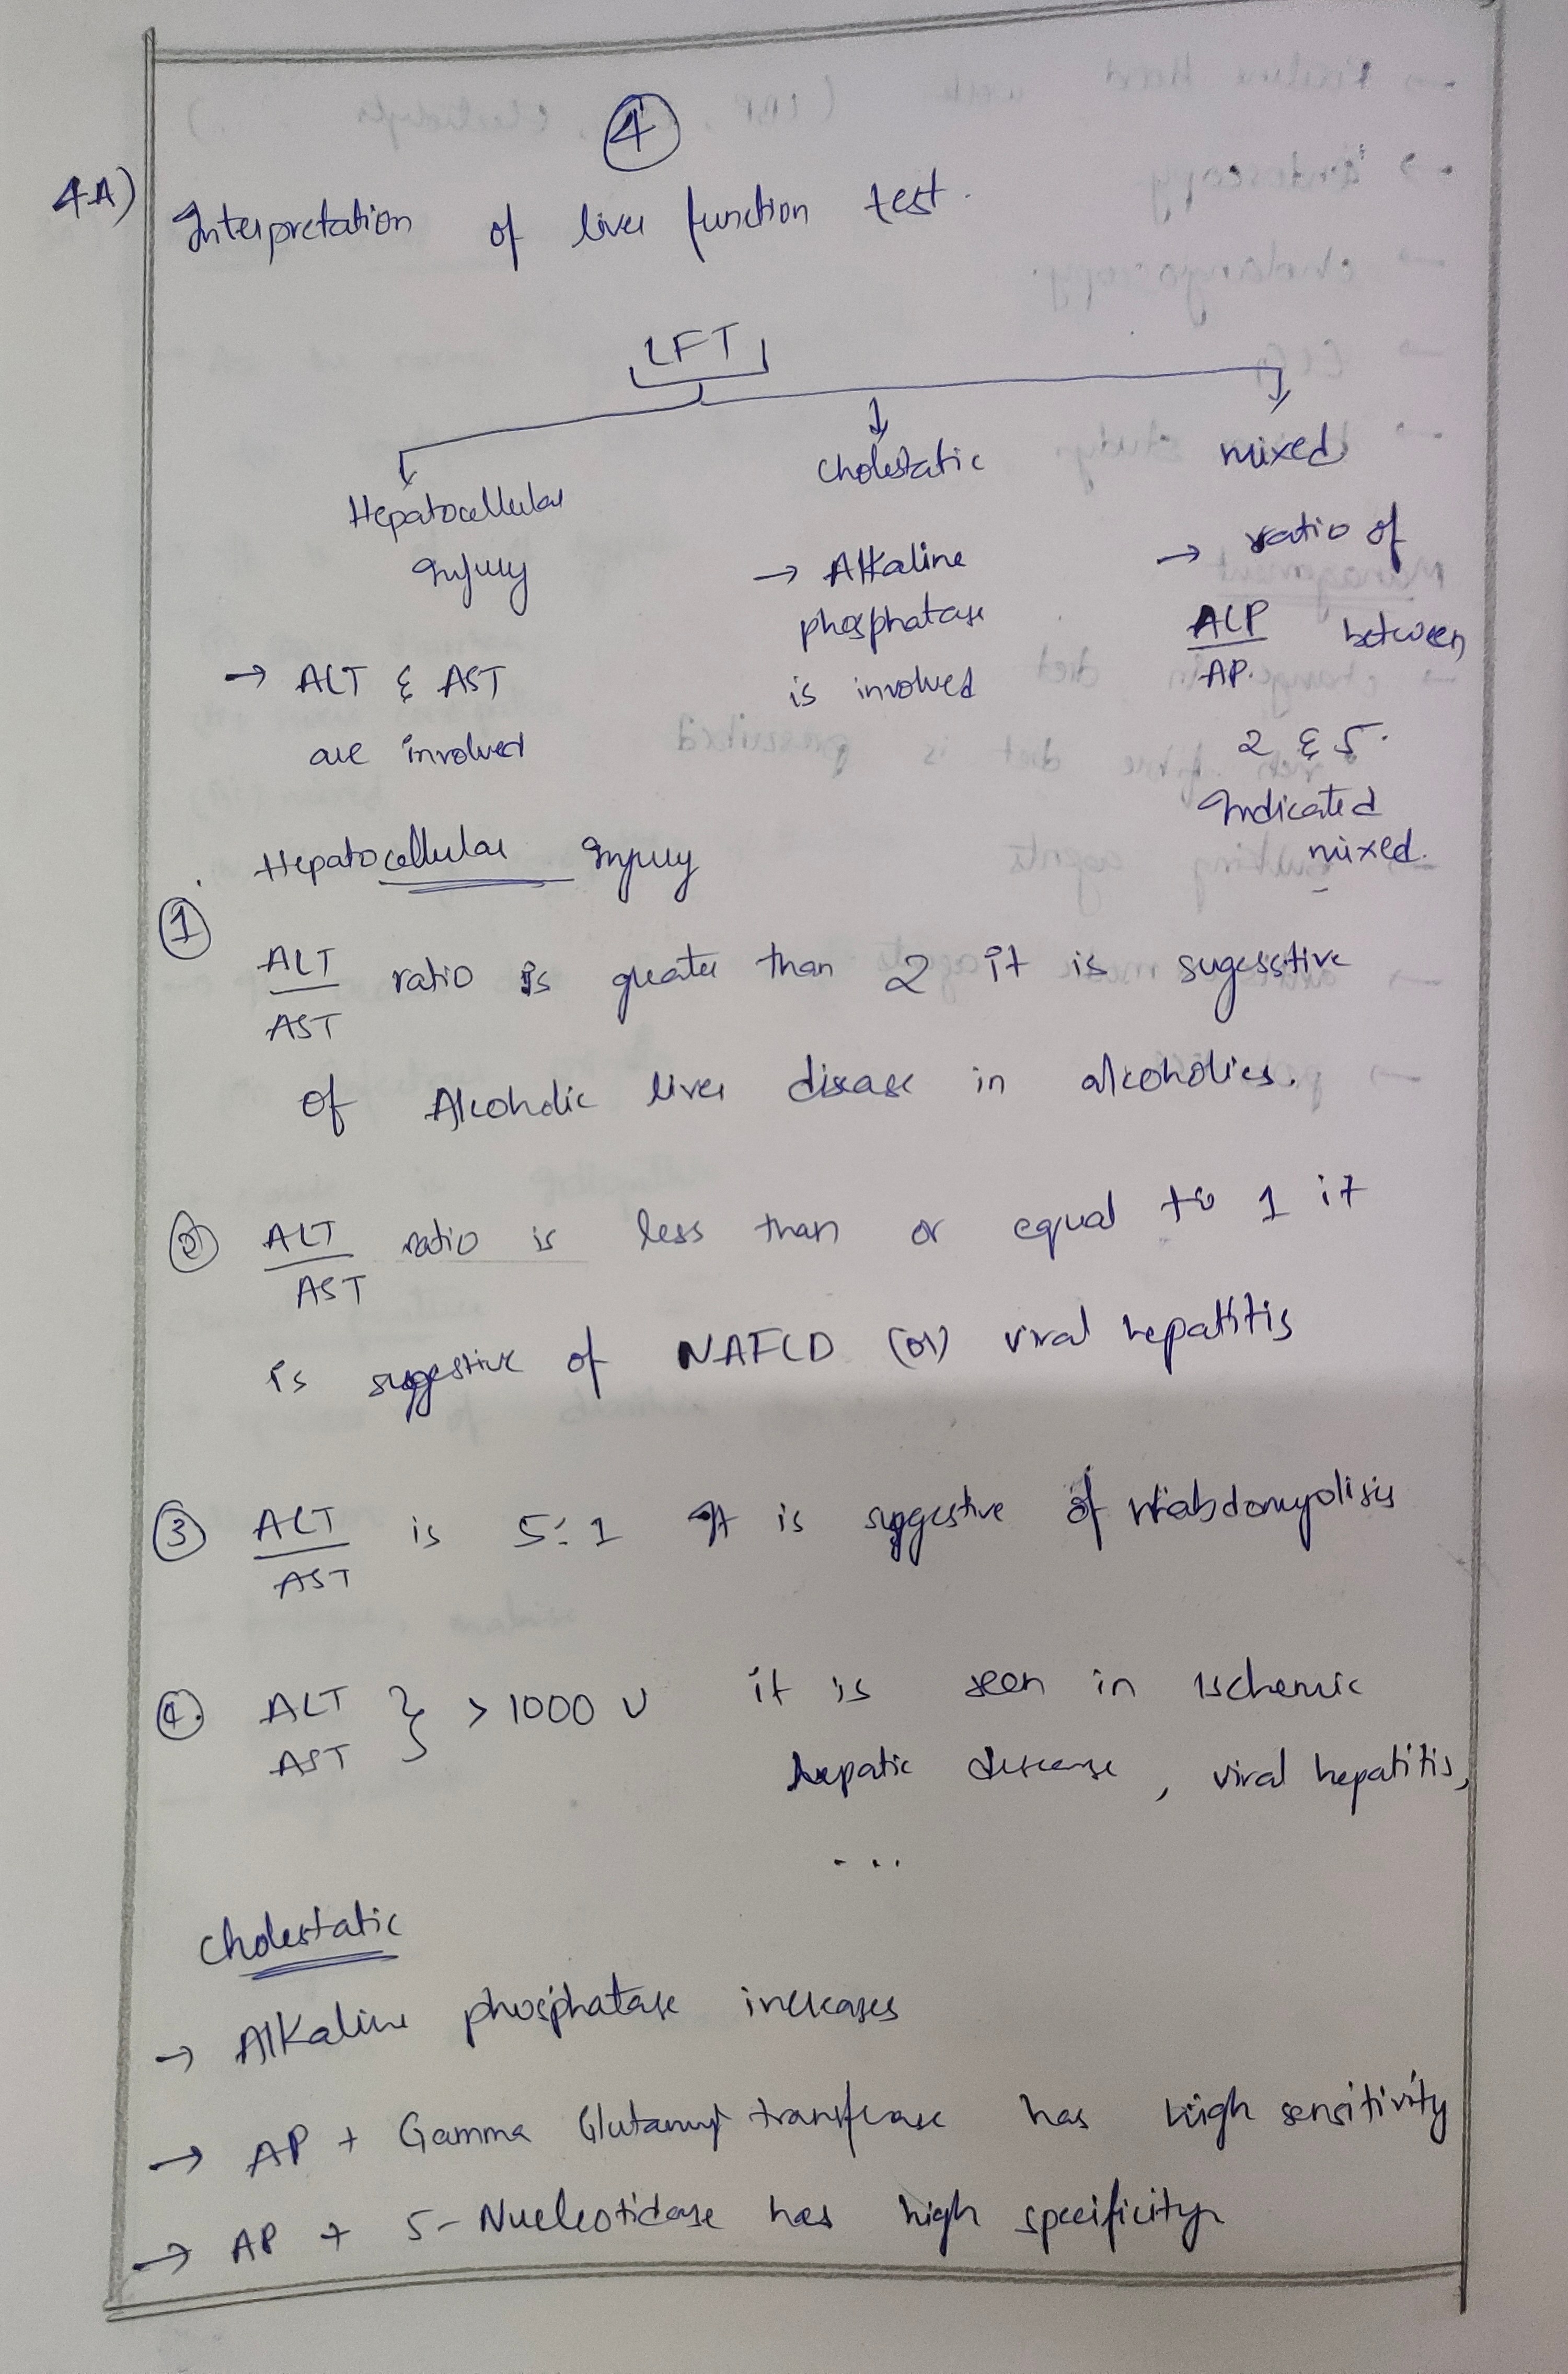 4
4A)
Interpretation of liver function test.
LFT
Hepatocellular
Injury
→ ALT & AST
are involved
cholestatic
→ Alkaline
phosphatase
is involved
mixed
→ ratio of
ALP between
AP.
2 & 5.
Indicated
mixed.
Hepatocellular Injury
① ALT ratio is greater than 2 it is sugesstive
AST
of Alcoholic liver disease in alcoholics.
② ALT ratio is less than or equal to 1 it
AST
is suggestive of NAFLD (or) viral hepatitis
③ ALT is 5:1 It is suggestive of rhabdomyolisis
AST
④. ALT } > 1000 U it is seen in ischemic
AST
hepatic disease, viral hepatitis,
...
cholestatic
→ Alkaline phosphatase increases
→ AP + Gamma Glutamyl transferase has high sensitivity
→ AP + 5-Nucleotidase has high specificity